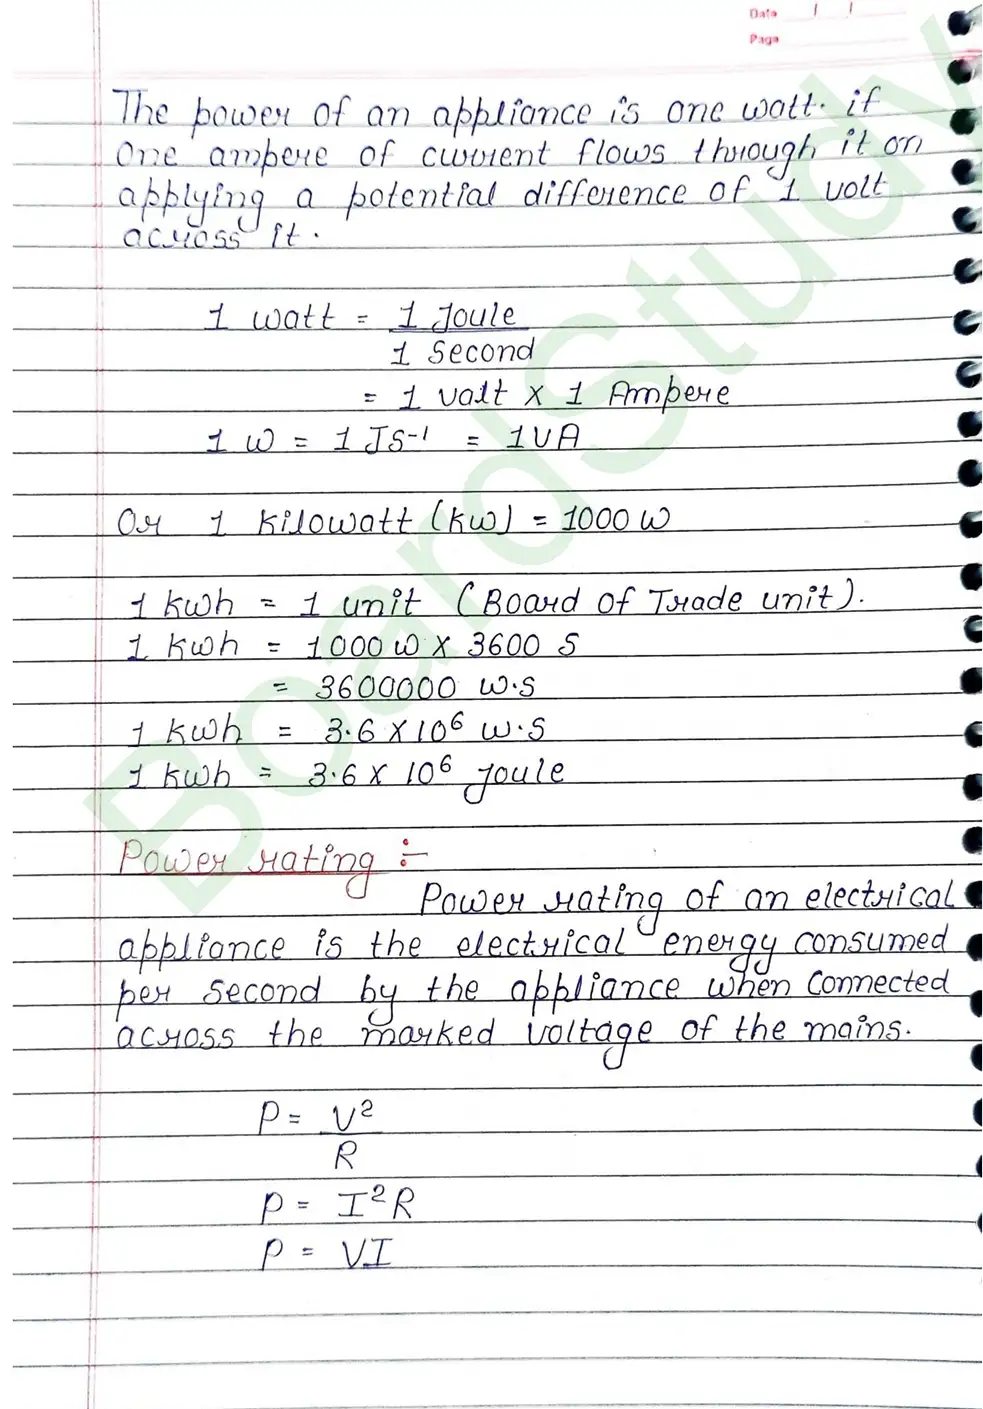 Date
Page
The power of an appliance is one watt. if
one ampere of current flows through it on
applying a potential difference of 1 volt
across it.
1 watt = 1 Joule
1 Second
= 1 valt x 1 Ampere
1 w = 1 JS⁻¹ = 1VA
Or 1 Kilowatt (Kw) = 1000 W
1 kwh = 1 unit (Board of Trade unit).
1 kwh = 1000 w x 3600 S
= 3600000 w.s
1 kwh = 3.6 x 10⁶ w.s
1 kwh = 3.6 x 10⁶ joule
Power rating :-
Power rating of an electrical
appliance is the electrical energy consumed
per second by the appliance when connected
across the marked voltage of the mains.
P = V²
R
P = I²R
P = VI
BoardStudy